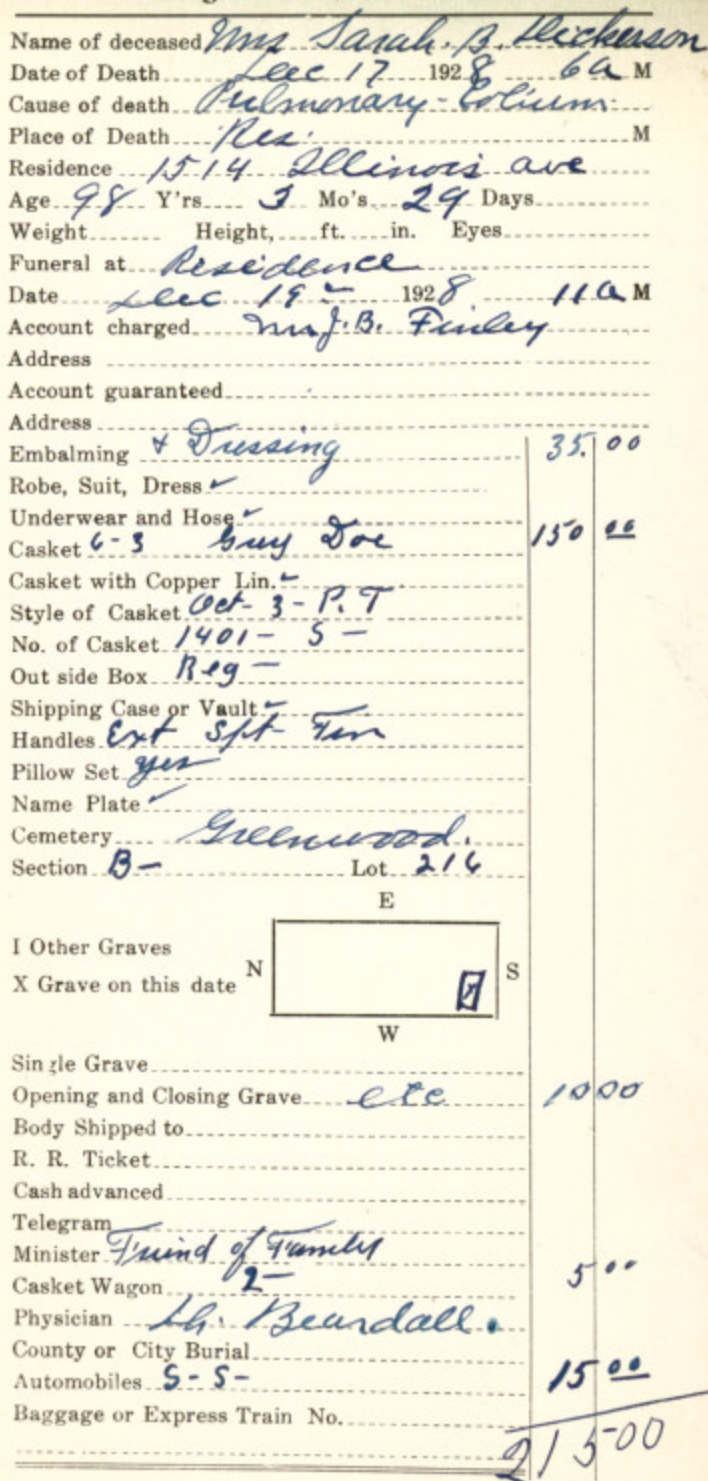 Name of deceased Mrs Sarah. B. Dickerson
Date of Death Dec 17 1928 6 a M
Cause of death Pulmonary
Place of Death Res. M
Residence 1514 Illinois ave
Age 98 Y'rs 3 Mo's 29 Days
Weight Height, ft. in. Eyes
Funeral at Residence
Date Dec 19 1928 11 a M
Account charged Mr J. B. Finley
Address
Account guaranteed
Address
Embalming + Dressing 35. 00
Robe, Suit, Dress
Underwear and Hose
Casket 6-3 Grey Doe 150 00
Casket with Copper Lin.
Style of Casket Oct - 3 - P. T
No. of Casket 1401 - S -
Out side Box Reg -
Shipping Case or Vault
Handles Ext
Pillow Set yes
Name Plate
Cemetery Greenwood.
Section B - Lot 216
E
I Other Graves
N S
X Grave on this date
W
Single Grave
Opening and Closing Grave etc 10 00
Body Shipped to
R. R. Ticket
Cash advanced
Telegram
Minister Friend of Family
Casket Wagon 2 - 5 00
Physician Beardall.
County or City Burial
Automobiles S - S - 15 00
Baggage or Express Train No.
215 00